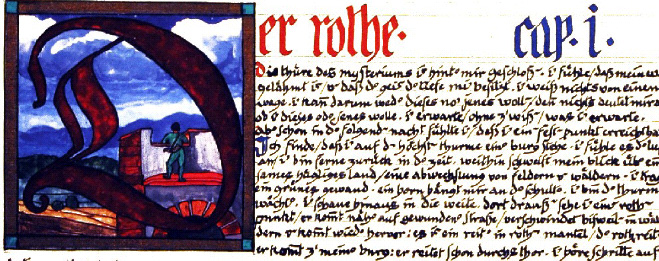 Der rothe. cap. i.
Die thüre des mysteriums ist hinter mir geschloss. i fühle/ daß mein w
gelähmt is/ v daß d geis d tiefe mi besitzt. i weiß nichts von einem
wege. i kan darum wed dieses no jenes woll/ den nichts deutet mir a
ob i dieses od jenes wolle. i erwarte/ ohne z wiss/ was i erwarte.
ab schon in d folgend nacht fühlte i/ daß i ein fest punkt erreicht ha
Ich finde/ daß i auf d höchst thurme ein burg stehe. i fühle es d lu
an/ i bin ferne zurück in d zeit. weithin schweift mein blick üb ein
sames hügliges land/ eine abwechslung von feldern v wäldern. i trag
ein grünes gewand. ein horn hängt mir an d schult. i bin d thurm
wächt. i schaue hinaus in die weite. dort drauß sehe i ein roth
punkt/ er komt näh auf gewunden straße/ verschwindet bisweil in wäl
dern v komt wied hervor: es is ein reit in roth mantel/ d rothe reit
er komt z mein burg: er reitet schon durchs thor. i höre schritte auf